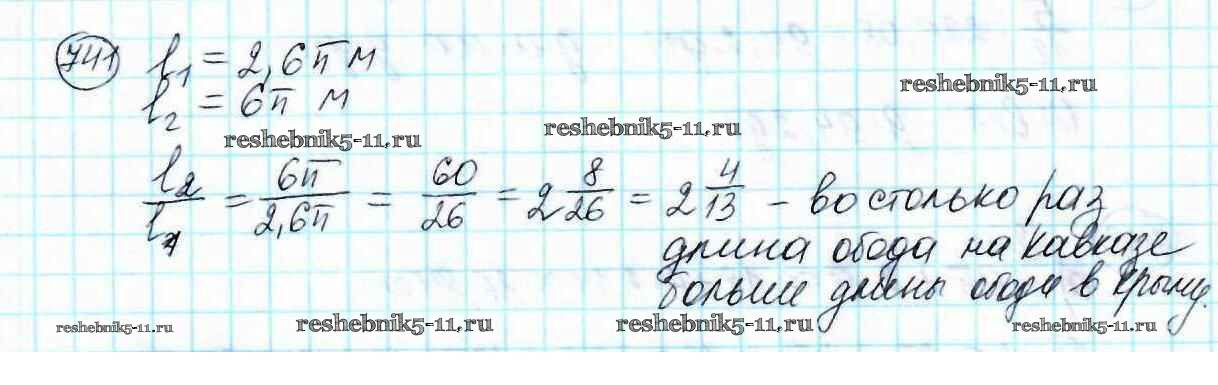 741 l₁ = 2,6π м
l₂ = 6π м
reshebnik5-11.ru
reshebnik5-11.ru
reshebnik5-11.ru
l₂/l₁ = 6π/2,6π = 60/26 = 2 8/26 = 2 4/13 – во столько раз
длина обода на Кавказе
больше длины обода в Крыму.
reshebnik5-11.ru
reshebnik5-11.ru
reshebnik5-11.ru
reshebnik5-11.ru